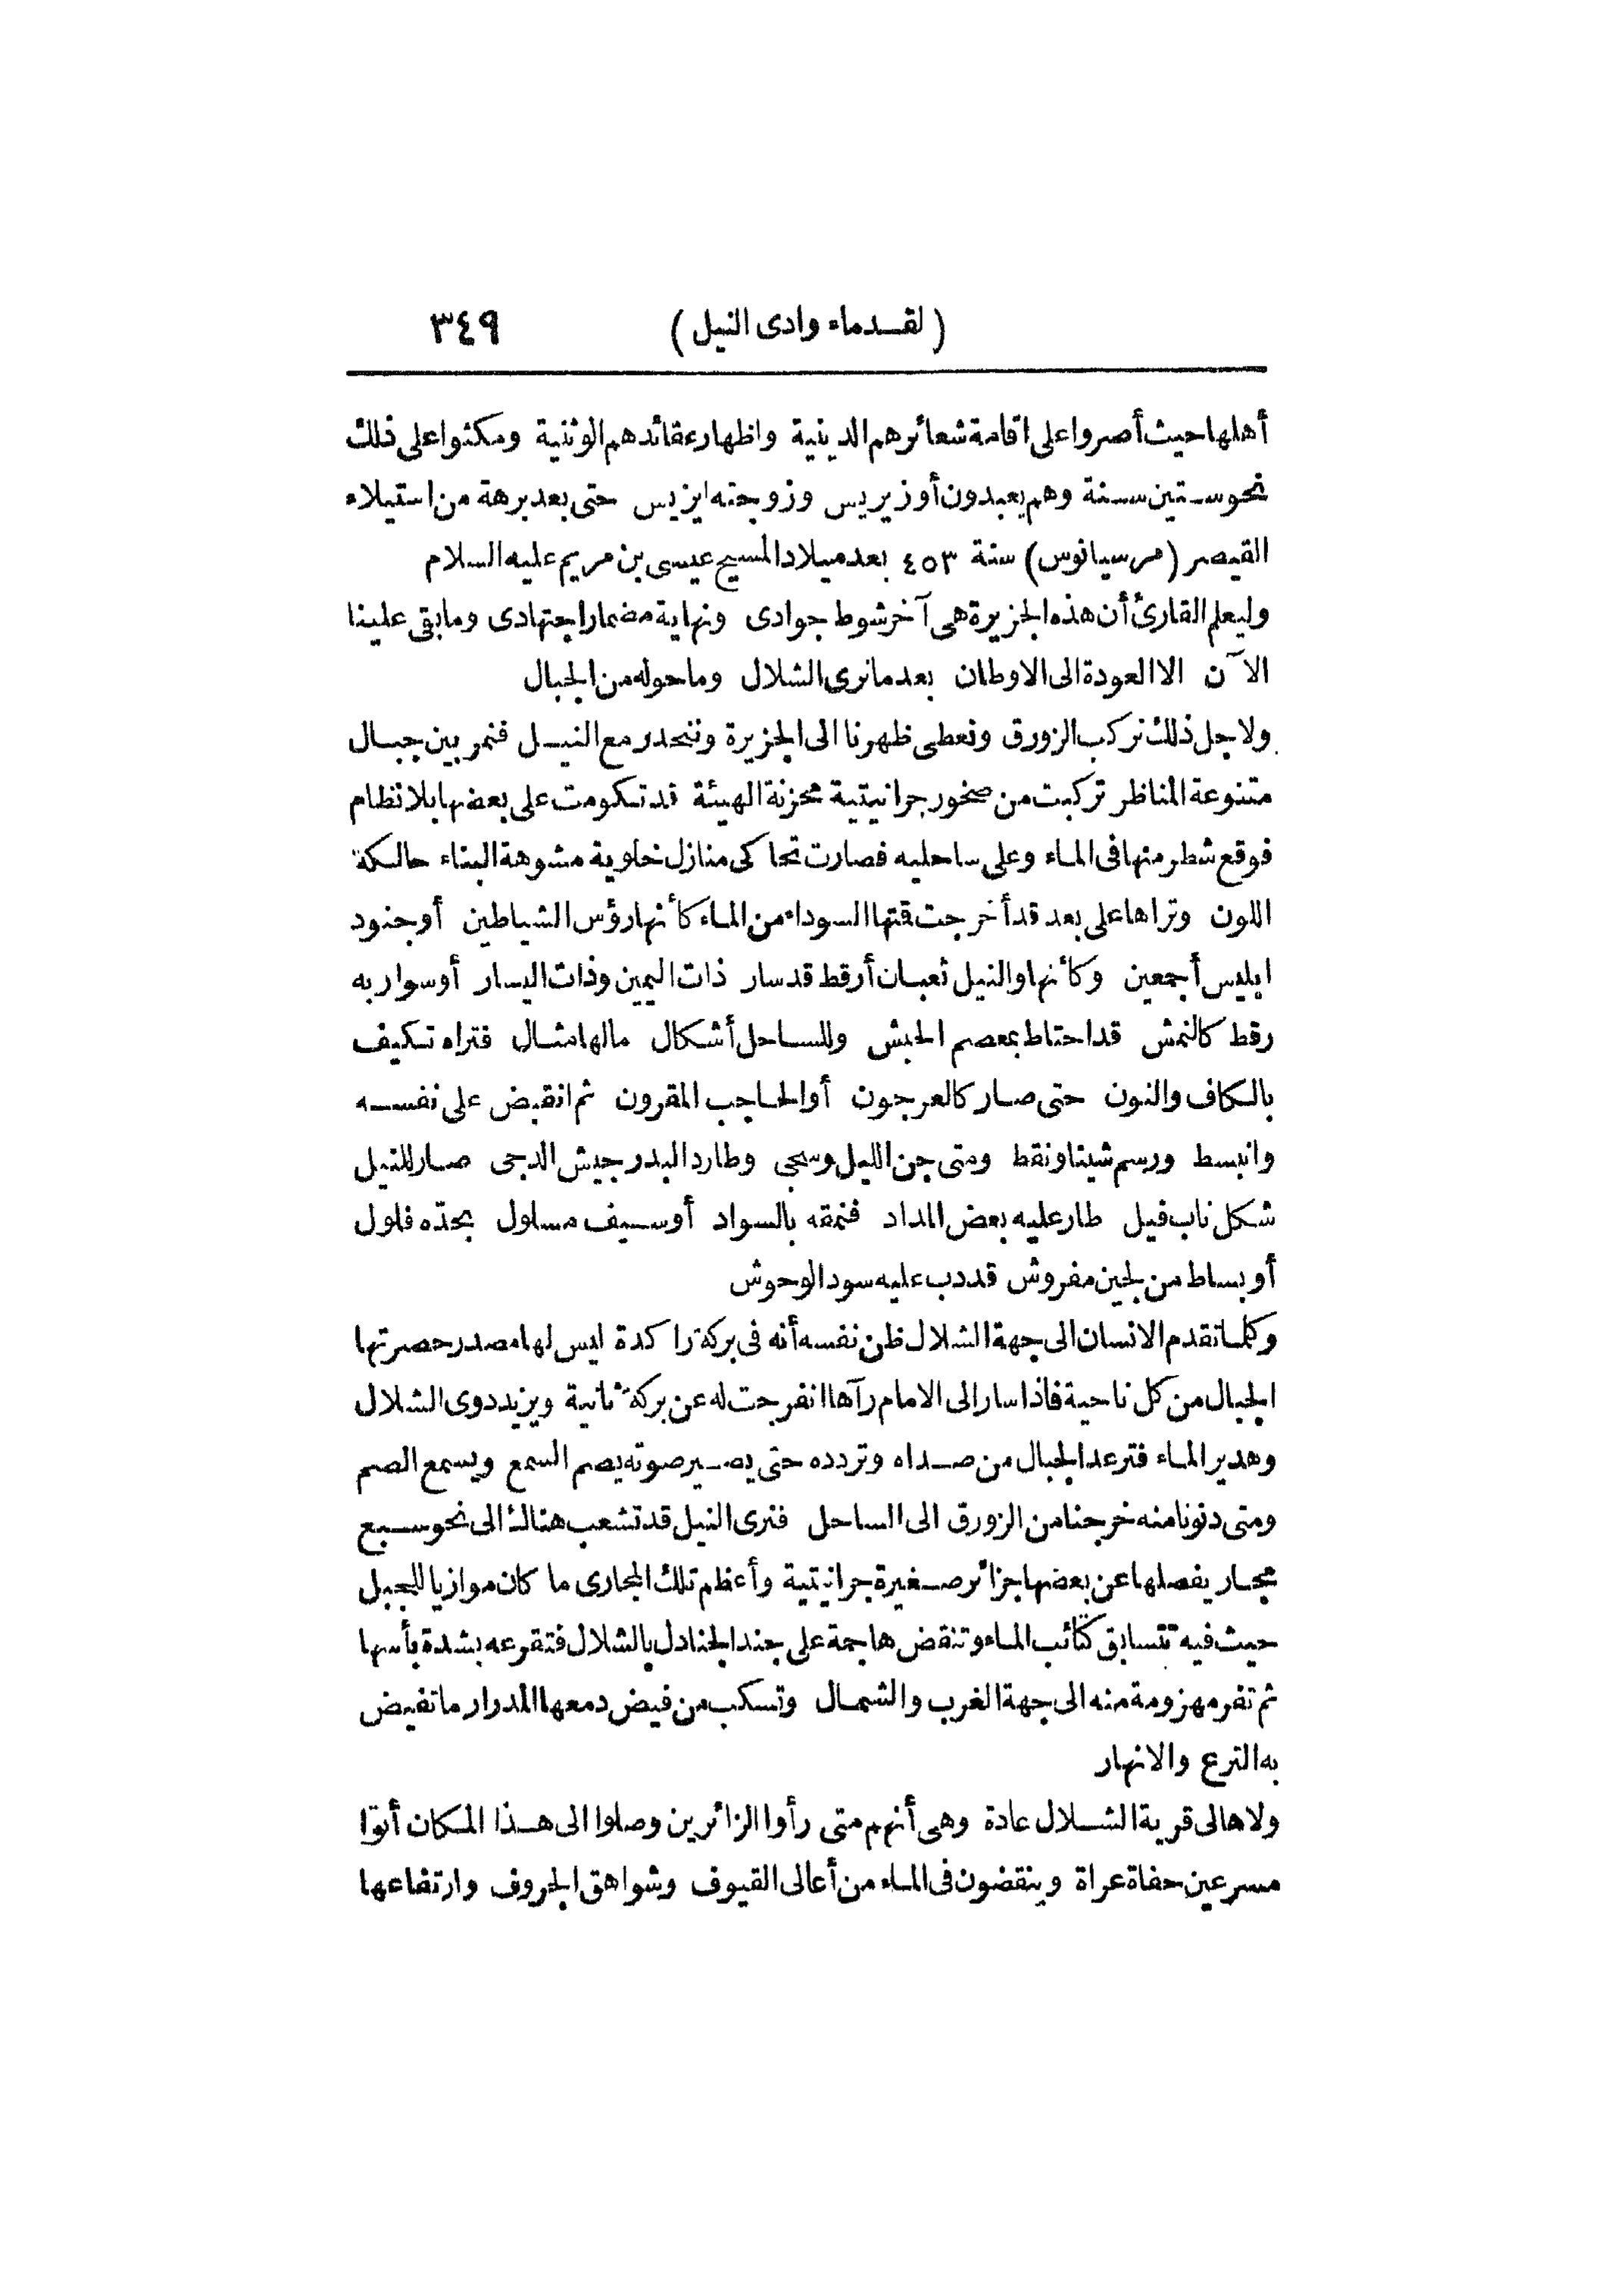 (لقدماء وادى النيل) ٣٤٩
أهلها حيث أصروا على اقامة شعائرهم الدينية واظهار عقائدهم الوثنية ومكثوا على ذلك
نحو ستين سنة وهم يعبدون أوزيريس وزوجته ايزيس حتى بعد برهة من استيلاء
القيصر (مرسيانوس) سنة ٤٥٣ بعد ميلاد المسيح عيسى بن مريم عليه السلام
وليعلم القارئ أن هذه الجزيرة هى آخر شوط جوادى ونهاية مضمار اجتهادى وما بقى علينا
الآن الا العودة الى الاوطان بعد مانرى الشلال وما حوله من الجبال
ولاجل ذلك نركب الزورق ونعطى ظهرنا الى الجزيرة وننحدر مع النيل فنمر بين جبال
متنوعة المناظر تركبت من صخور جرانيتية محزنة الهيئة قد تكومت على بعضها بلا نظام
فوقع شطر منها فى الماء وعلى ساحليه فصارت تحاكى منازل خاوية مشوهة البناء حالكة
اللون وتراها على بعد قد أخرجت قتها السوداء من الماء كأنها رؤس الشياطين أو جنود
ابليس أجمعين وكأنها والنيل ثعبان أرقط قد سار ذات اليمين وذات اليسار أو سوار به
رقط كالنمش قد احتاط بمعصم الحبش وللساحل أشكال مالها مثال فتراه تكيف
بالكاف والنون حتى صار كالعرجون أو الحاجب المقرون ثم انقبض على نفسه
وانبسط ورسم شينا ونقط ومتى جن الليل وسجى وطارد البدر جيش الدجى صار للنيل
شكل ناب فيل طار عليه بعض المداد فنمقه بالسواد أو سيف مسلول بحدّه فلول
أو بساط من لجين مفروش قد دب عليه سود الوحوش
وكلما تقدم الانسان الى جهة الشلال ظن نفسه أنه فى بركة راكدة ليس لها مصدر حصرتها
الجبال من كل ناحية فاذا سار الى الامام رآها انفرجت له عن بركة ثانية ويزيد دوى الشلال
وهدير الماء فترعد الجبال من صداه وتردده حتى يصير صوته يصم السمع ويسمع الصم
ومتى دنونا منه خرجنا من الزورق الى الساحل فنرى النيل قد تشعب هنالك الى نحو سبع
مجار يفصلها عن بعضها جزائر صغيرة جرانيتية وأعظم تلك المجارى ما كان موازيا للجبل
حيث فيه تتسابق كتائب الماء وتنقض هاجمة على جند الجنادل بالشلال فتقرعه بشدة بأسها
ثم تفر مهزومة منه الى جهة الغرب والشمال وتسكب من فيض دمعها المدرار ما تفيض
به الترع والانهار
ولاهالى قرية الشلال عادة وهى أنهم متى رأوا الزائرين وصلوا الى هذا المكان أتوا
مسرعين حفاة عراة وينقضون فى الماء من أعالى القيوف وشواهق الجروف وارتفاعها